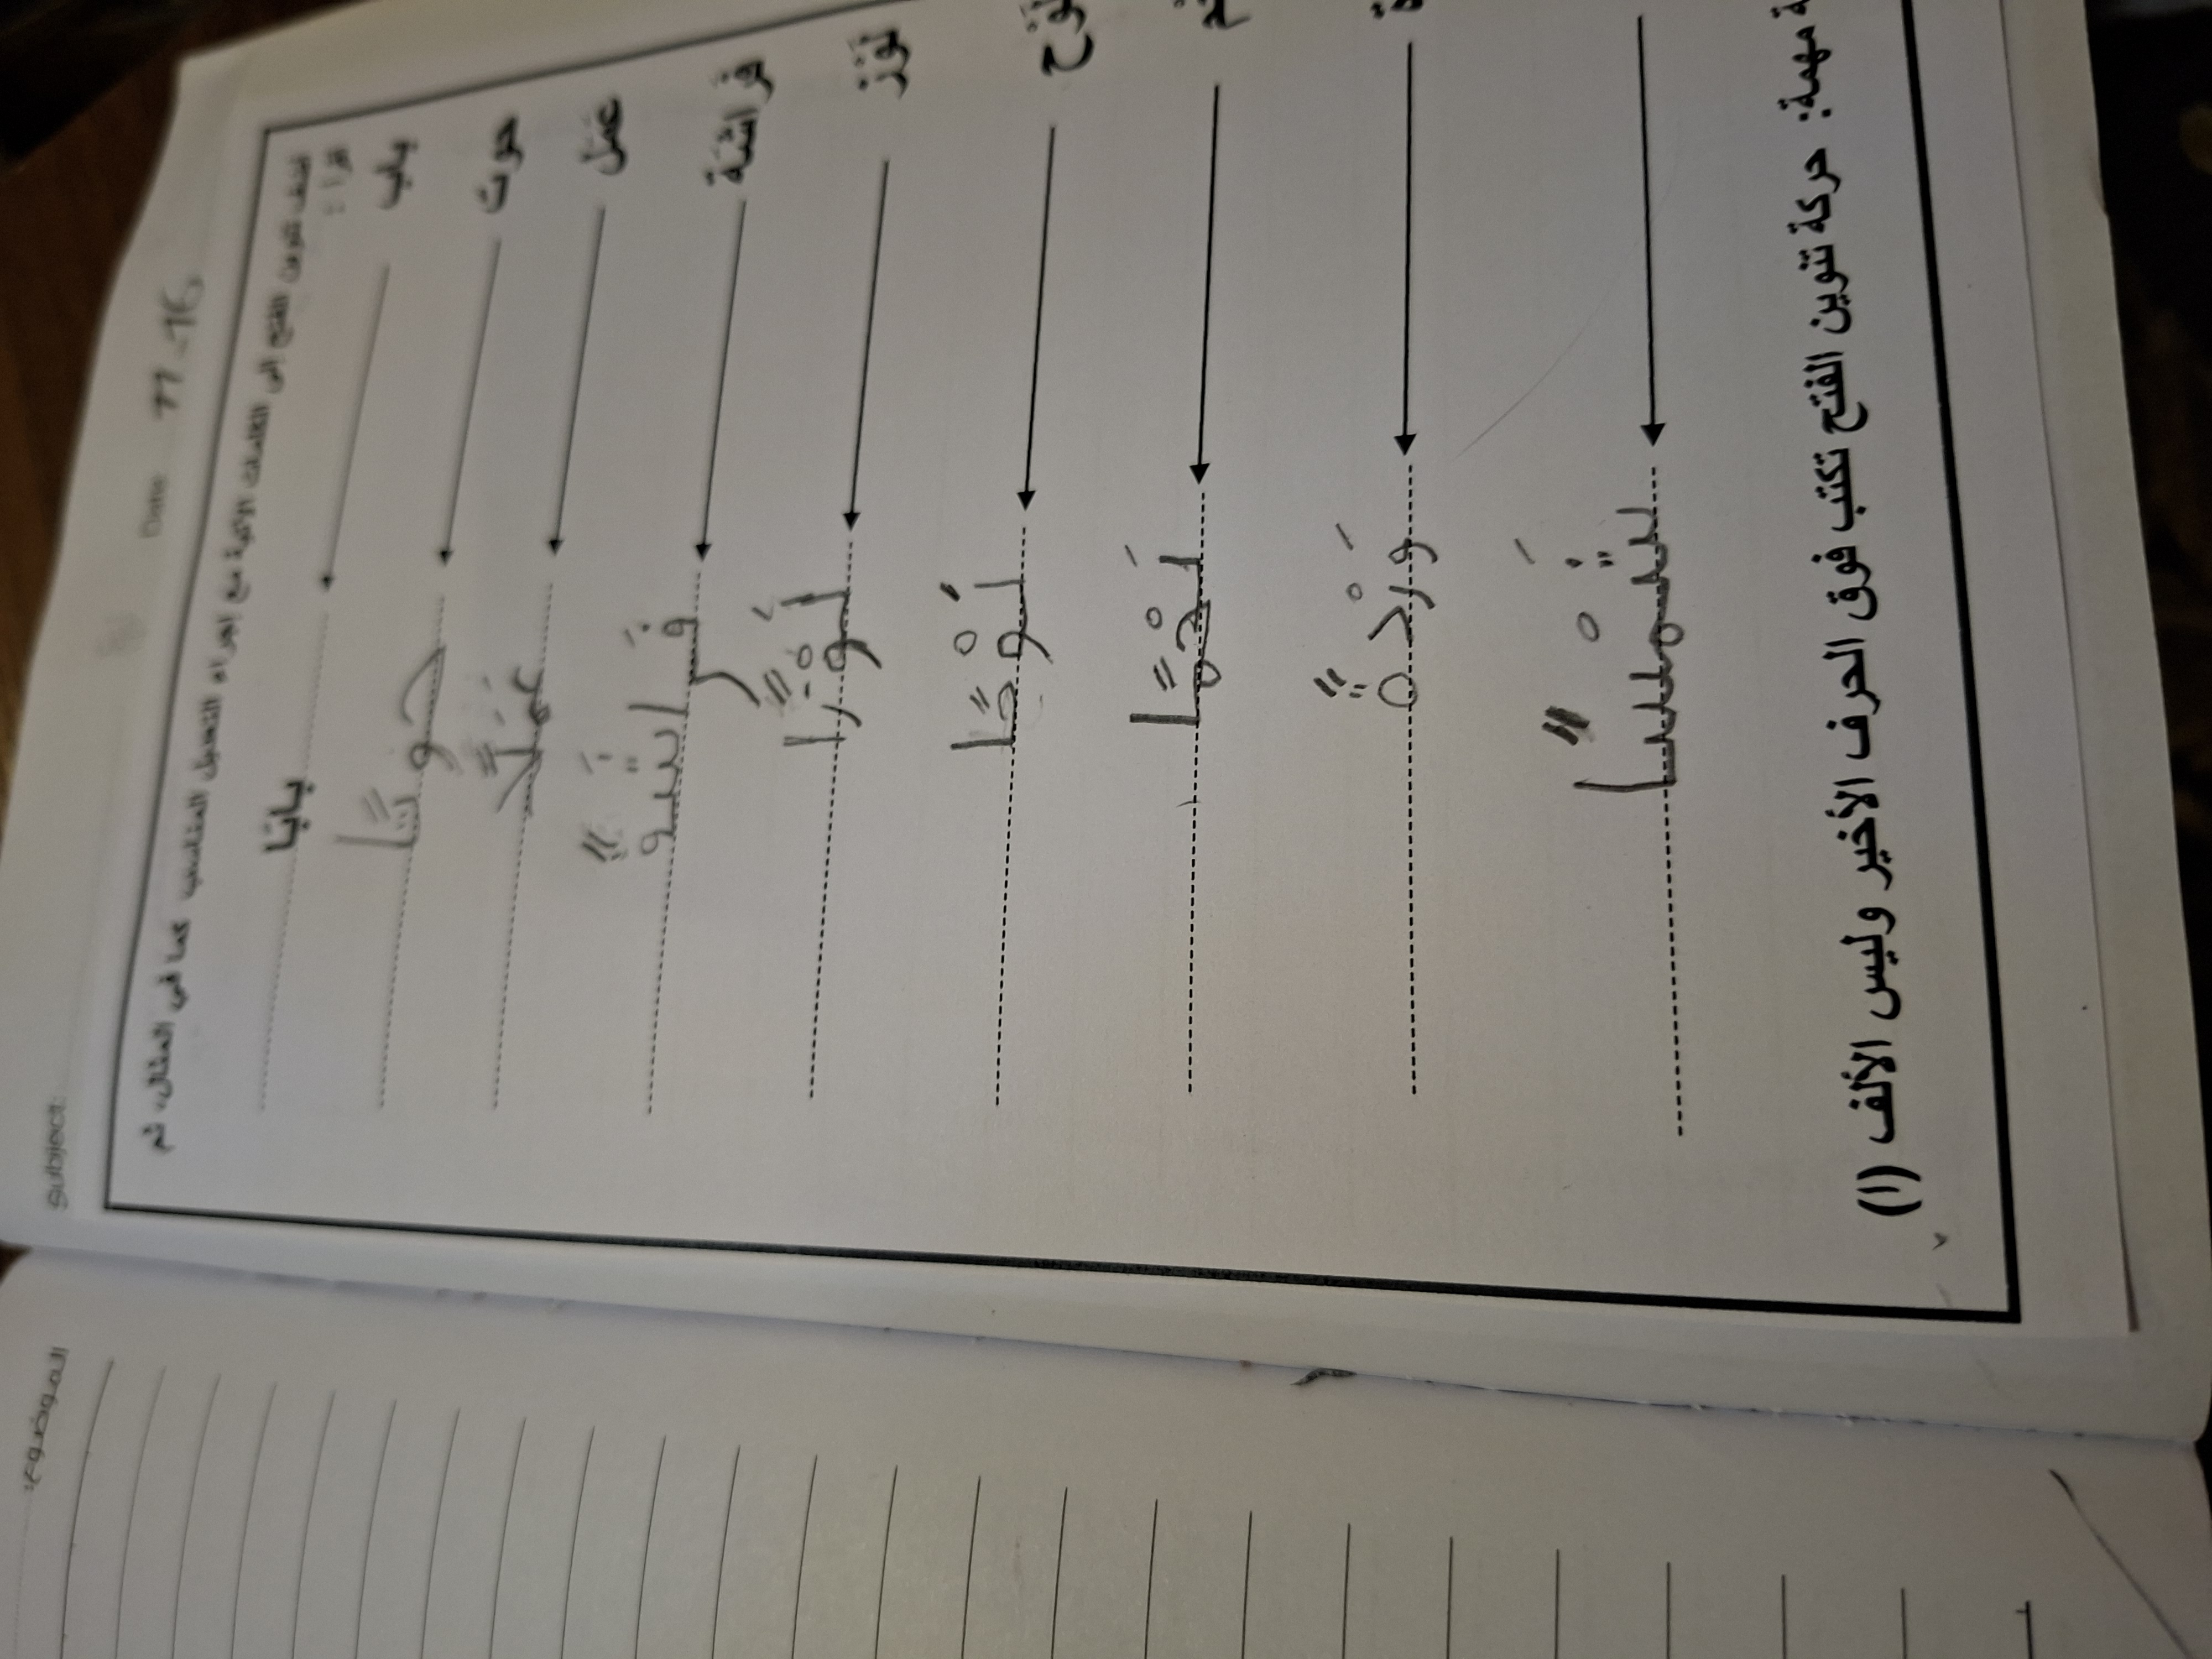 Subject:
Date: 11-16
أضف تنوين الفتح إلى الكلمات الآتية مع إجراء التعديل المناسب كما في المثال، ثم
اقرأ:
باب بابًا
حوت حوتًا
عمل عملًا
فراشة فراشةً
لوز لَوْزًا
لوح لَوْحًا
لَحْمًا
وَرْدةً
شَمْسًا
مهمة: حركة تنوين الفتح تكتب فوق الحرف الأخير وليس الألف (ا)
الموضوع: